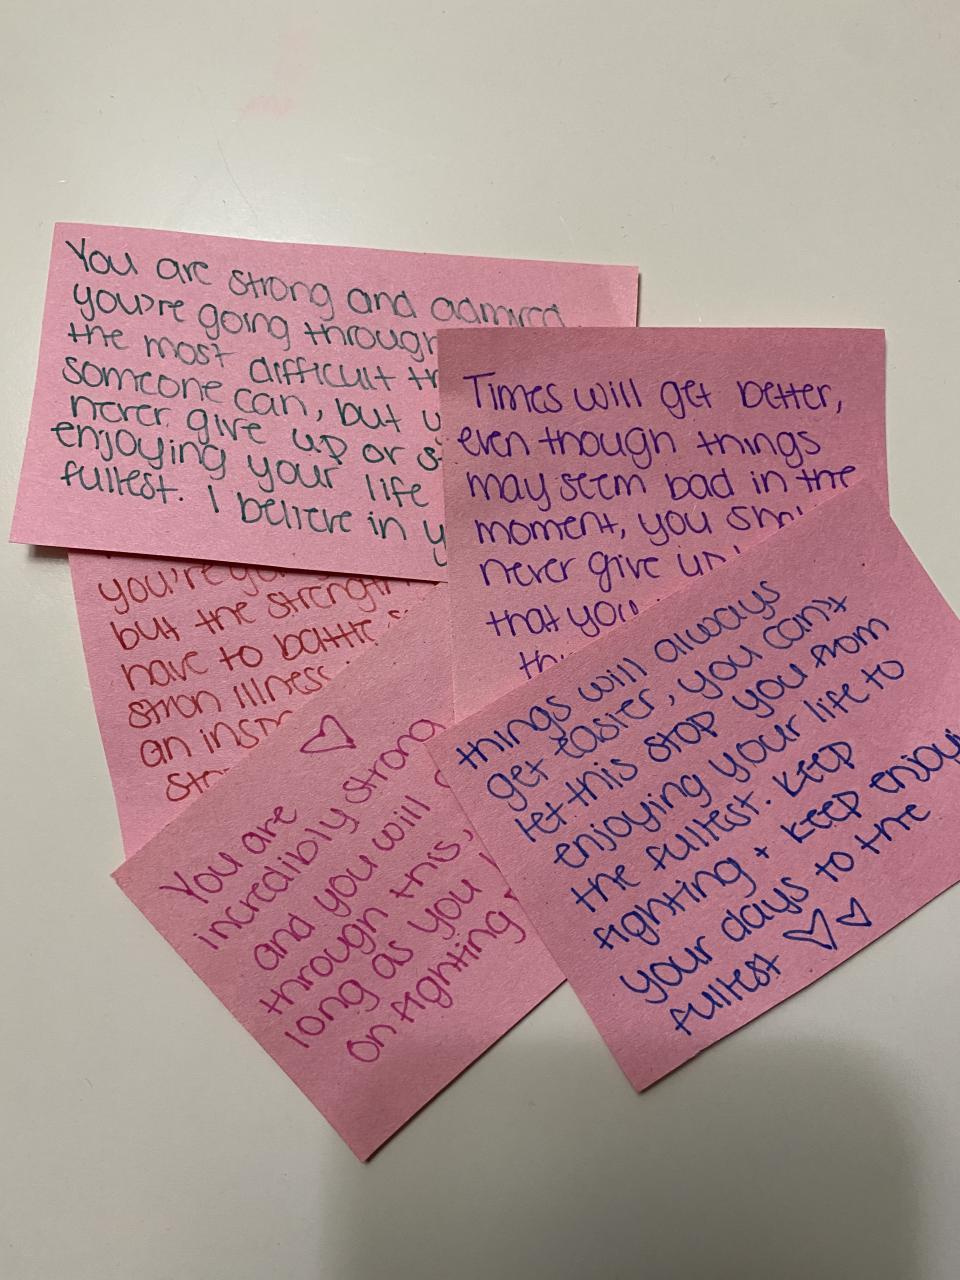 You are strong and admired
you're going through
the most difficult
someone can, but
never give up or
enjoying your life
fullest. I believe in
Times will get better,
even though things
may seem bad in the
moment, you
never give up
that you
you're
but the strength
have to battle
stron illness
an
You are
incredibly strong
and you will
through this,
long as you
on fighting
things will always
get easier, you can't
let this stop you from
enjoying your life to
the fullest. Keep
fighting + keep enjoying
your days to the
fullest